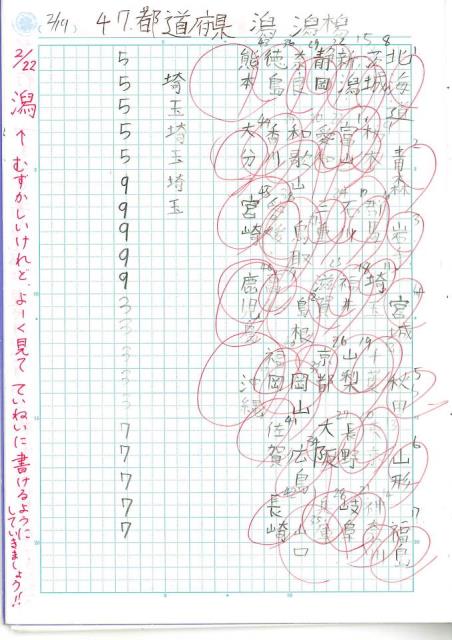 (2/19) 47都道府県 潟 潟
北海道 青森 岩手 宮城 秋田 山形 福島
茨城 栃木 群馬 埼玉 千葉 東京 神奈川
新潟 富山 石川 福井 山梨 長野 岐阜
静岡 愛知 三重 滋賀 京都 大阪 兵庫
奈良 和歌山 鳥取 島根 岡山 広島 山口
徳島 香川 福岡 佐賀 長崎
熊本 大分 宮崎 鹿児島 沖縄
埼玉埼玉埼玉
5 5 5 5 5 9 9 9 9 9 3 3 3 3 3 7 7 7 7 7
2/22 潟 ↑ むずかしいけれど よーく見て ていねいに書けるように
していきましょう!!